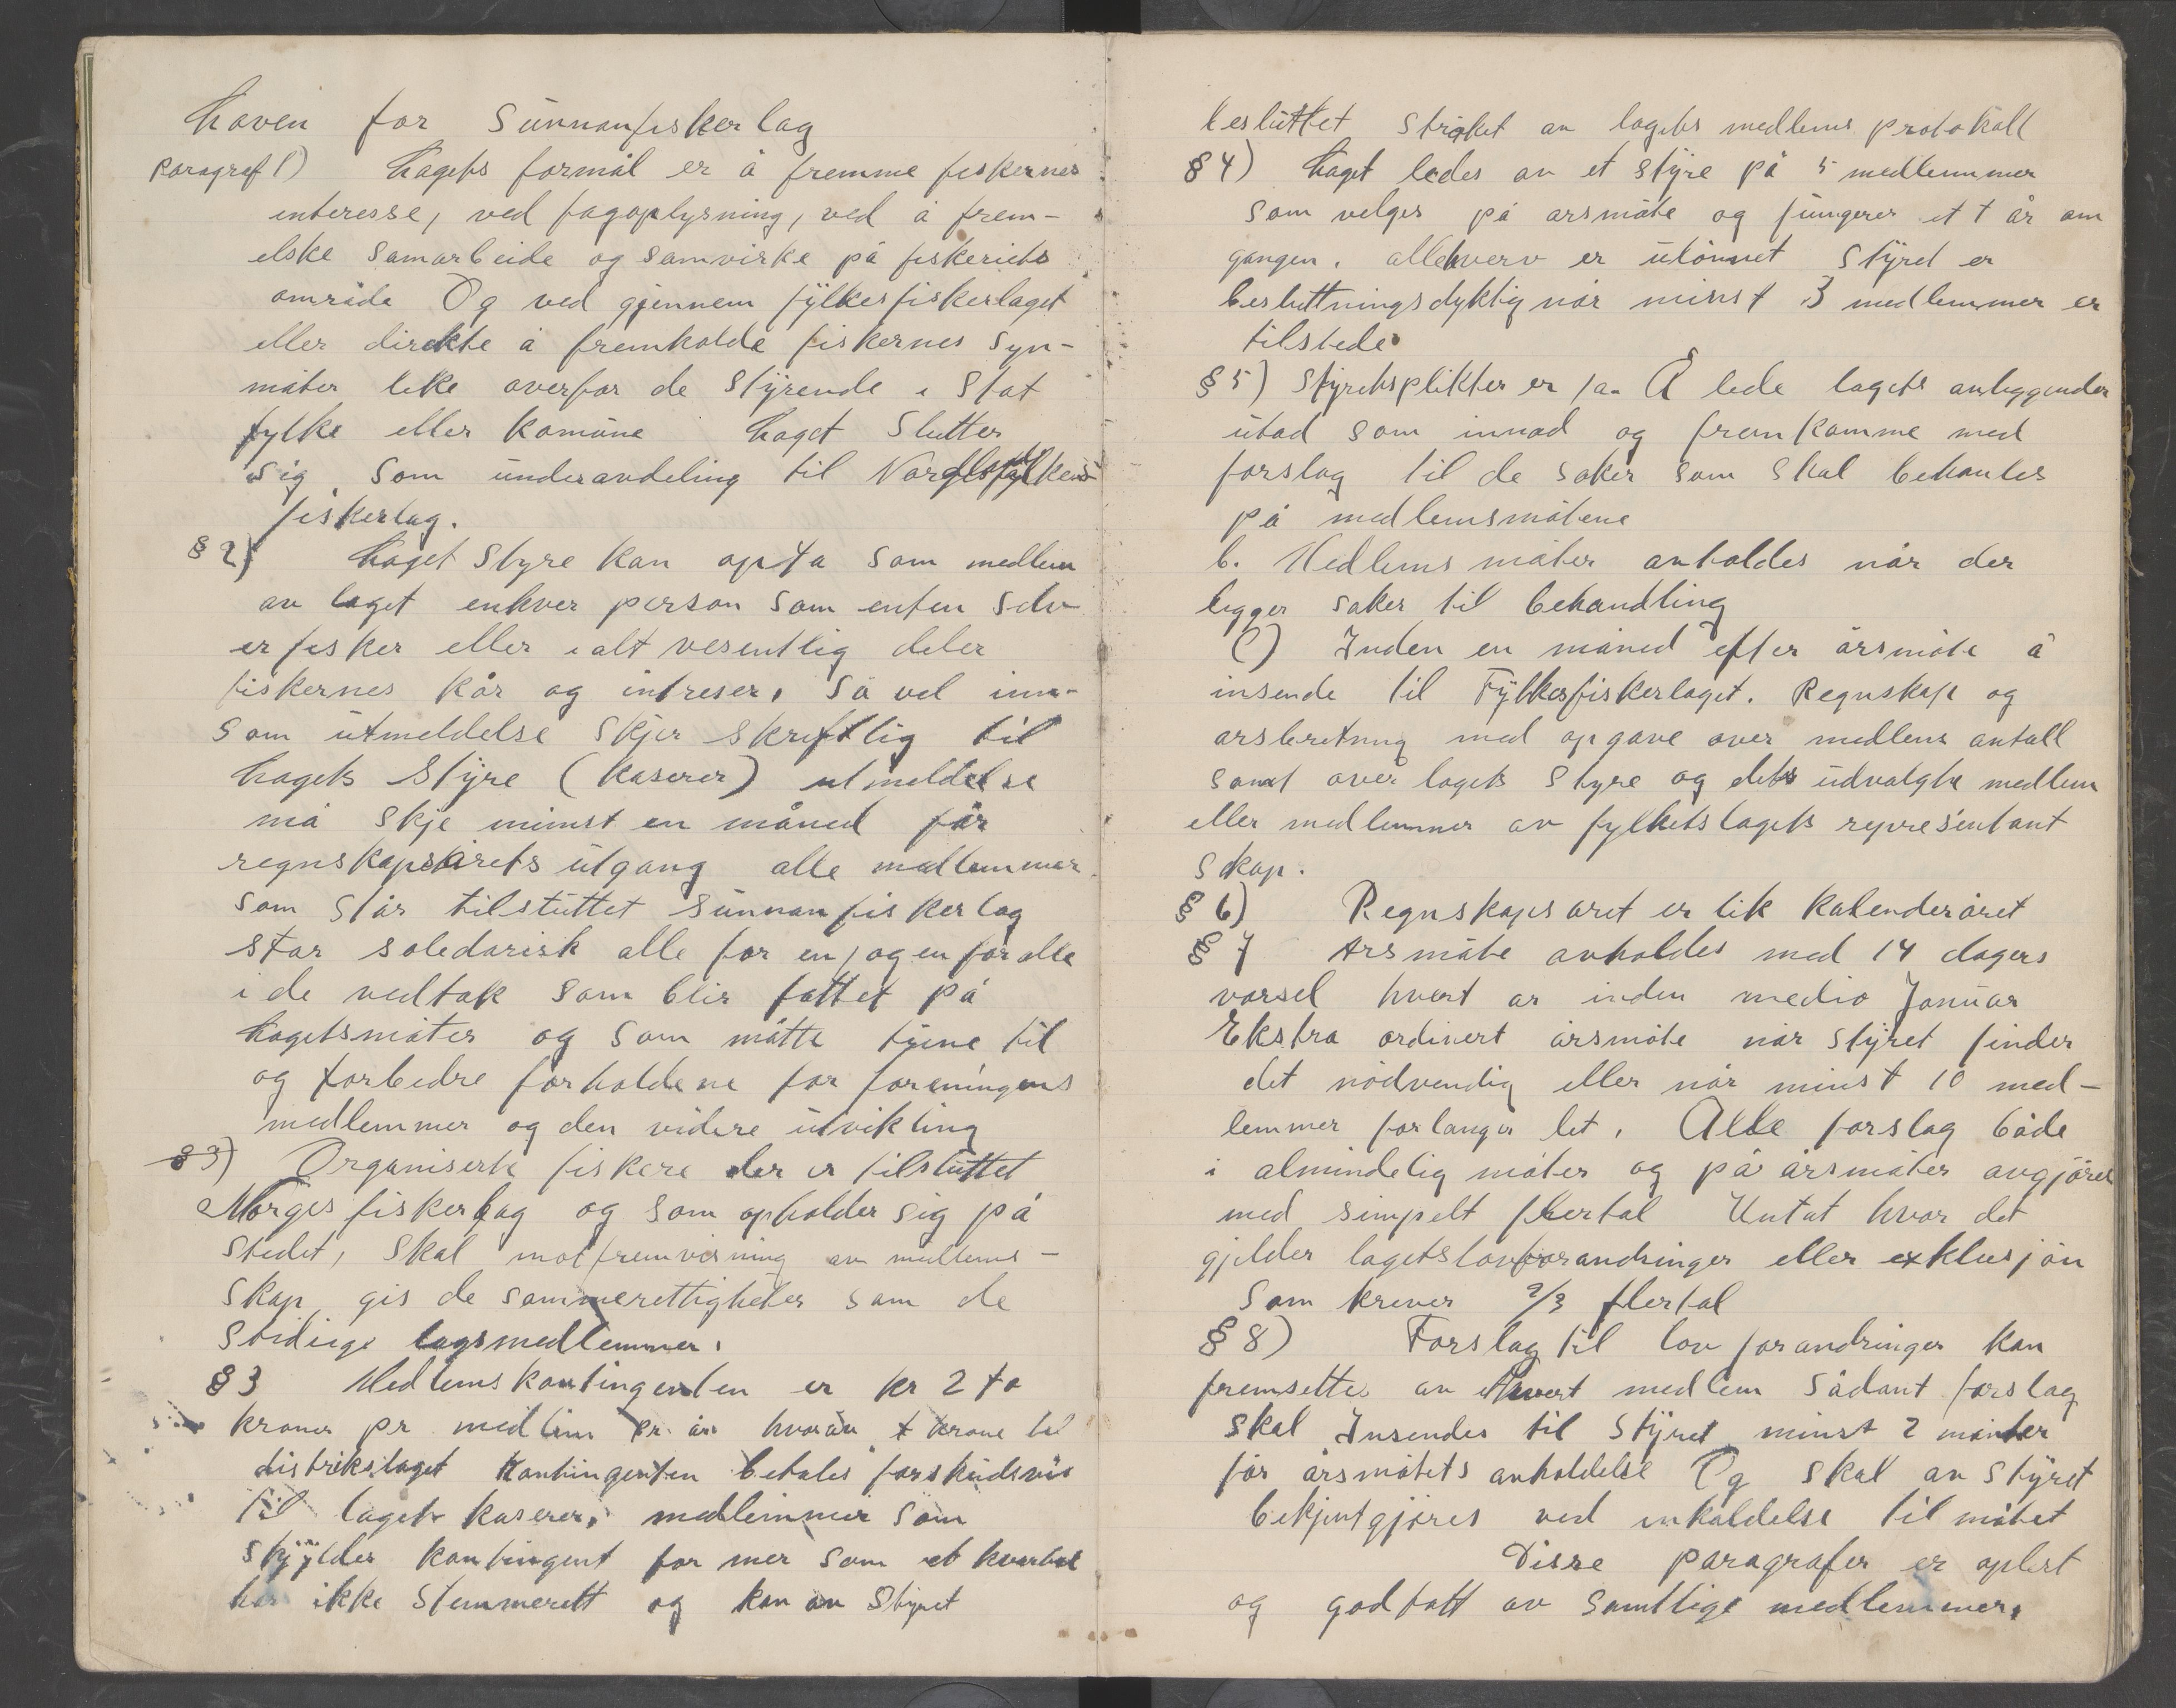 Loven for Sunnanfiskerlag
Paragraf 1) Lagets formål er å fremme fiskernes
interesse, ved fagoplysning, ved å frem-
elske samarbeide og samvirke på fiskeriets
område Og ved gjennem fylkesfiskerlaget
eller direkte å fremholde fiskernes syn-
måter like overfor de styrende i Stat
fylke eller komune Laget slutter
sig som underavdeling til Nordlandfylkens
fiskerlag.
§ 2) Laget Styre kan opta som medlem
av laget enhver person som enten selv
er fisker eller i alt vesentlig deler
fiskernes kår og intreser. Så vel inn-
som utmeldelse skjer skriftlig til
Lagets Styre (kaserer) utmeldelse
må skje minst en måned før
regnskapsårets utgang alle medlemmer
som står tilsluttet sunnanfiskerlag
står soledarisk alle for en, og en for alle
i de vedtak som blir fattet på
Lagetsmøter og som måtte tjene til
og forbedre forholdene for foreningens
medlemmer og den videre utvikling
§ 3) Organiserte fiskere der er tilsluttet
Norges fiskerlag og som opholder sig på
stedet, skal mot fremvisning av medlems-
skap gis de sammerettigheter som de
stedige lagsmedlemmer.
§ 3 Medlemskontingenten er kr 2 to
kroner pr medlem pr. år hvorav 1 krone til
distrikslaget kontingenten betales forskudsvis
til lagets kaserer, medlemmer som
skylder kontingent for mer som et kvartal
har ikke stemmerett og kan av Styret
besluttet strøket av lagets medlems protokoll
§ 4) Laget ledes av et styre på 5 medlemmer
som velges på årsmøte og fungerer ett år om
gangen. alle hverv er ulønnet Styret er
besluttningsdyktig når minst 3 medlemmer er
tilstede
§ 5) Styretsplikter er /a. Å lede lagets anliggender
utad som innad og fremkomme med
forslag til de saker som skal behantles
på medlemsmøtene
b. Medlemsmøter avholdes når der
ligger saker til behandling
C) Inden en måned efter årsmøte å
insende til Fylkesfiskerlaget. Regnskap og
årsberetning med opgave over medlems antall
samt over lagets styre og dets udvalgte medlem
eller medlemmer av fylketslagets representant
skap.
§ 6) Regnskapsåret er lik kalenderåret
§ 7 Årsmøte avholdes med 14 dagers
varsel hvert år inden medio Januar
Ekstra ordinert årsmøte når styret finder
det nødvendig eller når minst 10 med-
lemmer forlanger det. Alle forslag både
i almindelig møter og på årsmøter avgjøres
med simpelt flertal Untat hvor det
gjelder lagetslovforandringer eller exklusjon
som krever 2/3 flertal
§ 8) Forslag til lov forandringer kan
fremsettes av ethvert medlem Sådant forslag
skal Insendes til Styret minst 2 månter
før årsmøtets avholdelse Og skal av Styret
bekjentgjøres ved inkaldelse til møtet
Disse paragrafer er oplest
og godtatt av samtlige medlemmer.